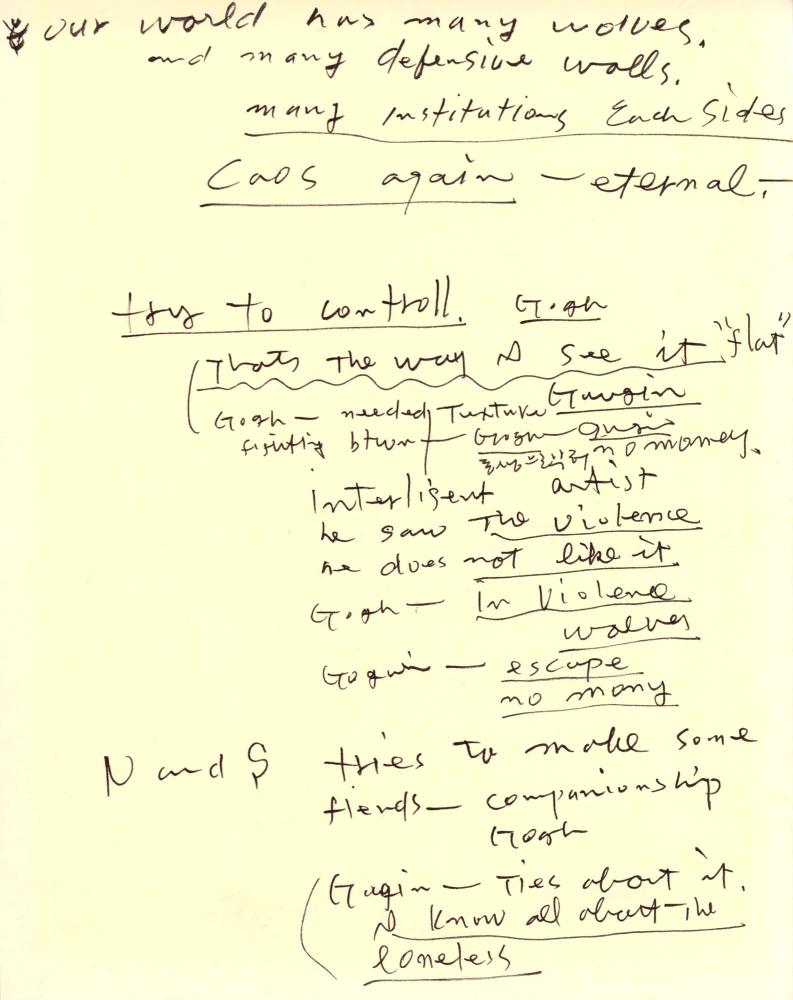 our world has many wolves.
and many defensive walls.
many institutions Each Sides
Caos again — eternal.—
try to controll. Gogh
Thats the way I see it, "flat"
Gogh — needed Texture Gaugin
fighting btwn — Gogh
no money.
Interligent artist
he saw The violence
he does not like it.
Gogh — In Violence
wolves
Goguin — escape
no mony
N and S tries to make some
fiends — companionship
Gogh
Gugin — Ties about it.
I know all about The
loneless